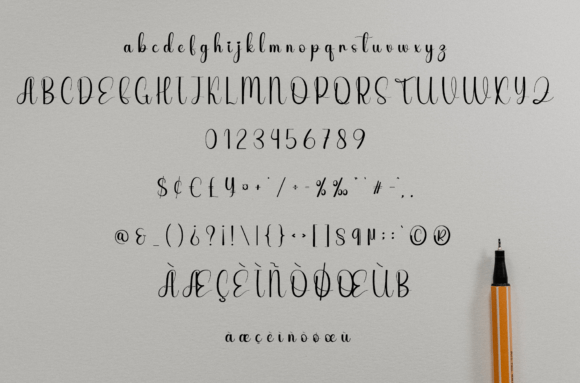 abcdefghijklmnopqrstuvwxyz
ABCDEFGHIJKLMNOPQRSTUVWXYZ
0123456789
$¢€£¥¤+¨/÷-%‰"'#-~,.
@&_()¿?¡!\|{}<>[]§¶µ:;`©®
ÀÆÇÈÌÑÒØŒÙß
àæçèìñòøœù